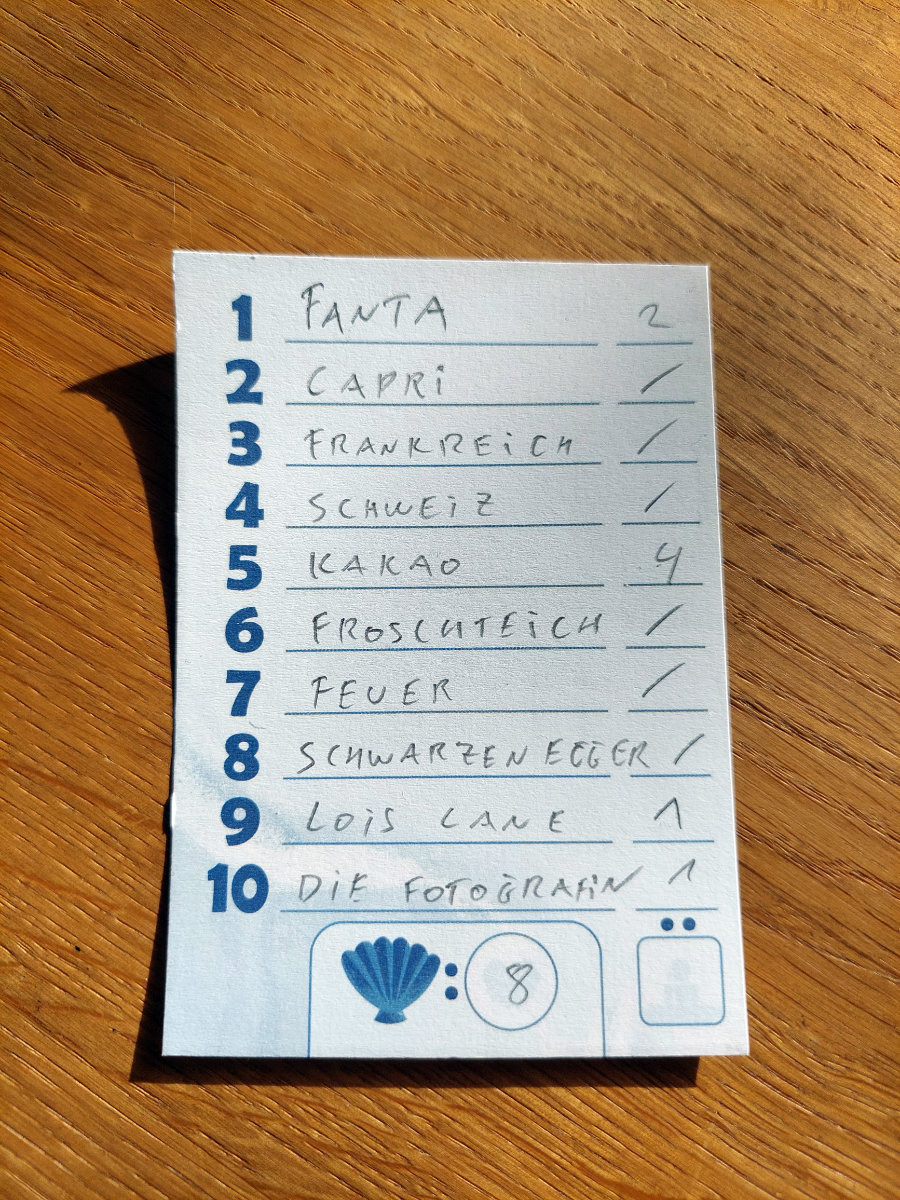 1 FANTA 2
2 CAPRI /
3 FRANKREICH /
4 SCHWEIZ /
5 KAKAO 4
6 FROSCHTEICH /
7 FEUER /
8 SCHWARZENEGGER /
9 LOIS LANE 1
10 DIE FOTOGRAFIN 1
: 8